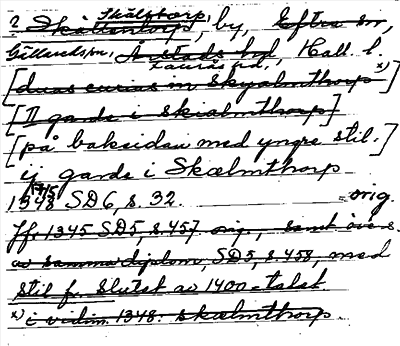 ? Skällentorp, Skälstorp, by, Eftra sn,
Gällareds sn, Årstads hd, Hall l.
Faurås hd.
[duas curias in Skyalmthorp x)]
[II garda i Skialmthorp]
[på baksidan med yngre stil.]
ij garda i Skælmthorp
1345
1348 SD6, s. 32. =orig.
Jfr 1345 SD5, s. 457 orig., samt övers.
av samma diplom, SD5, s. 458, med
stil fr. slutet av 1400-talet
x) i vidim. 1348: skælmthorp.